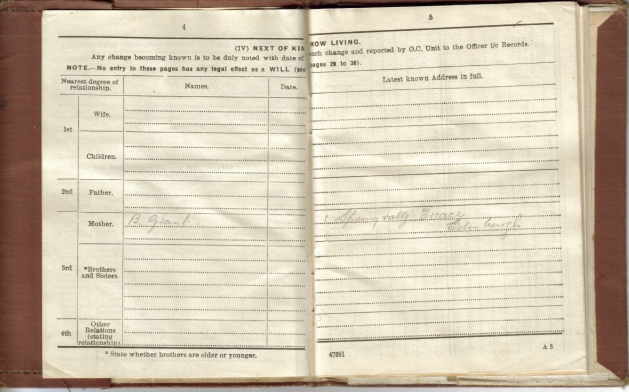 4
(IV) NEXT OF KIN
Any change becoming known is to be duly noted with date of
NOTE.—No entry in these pages has any legal effect as a WILL (see
Nearest degree of relationship.
Names.
Date.
1st
Wife.
Children.
2nd
Father.
Mother.
B. Grant.
3rd
*Brothers and Sisters.
4th
Other Relations (stating relationship)
* State whether brothers are older or younger.
5
NOW LIVING.
such change and reported by O.C. Unit to the Officer i/c Records.
pages 29 to 36).
Latest known Address in full.
1 Springvalley Terrace
Edinburgh
47681
A 3